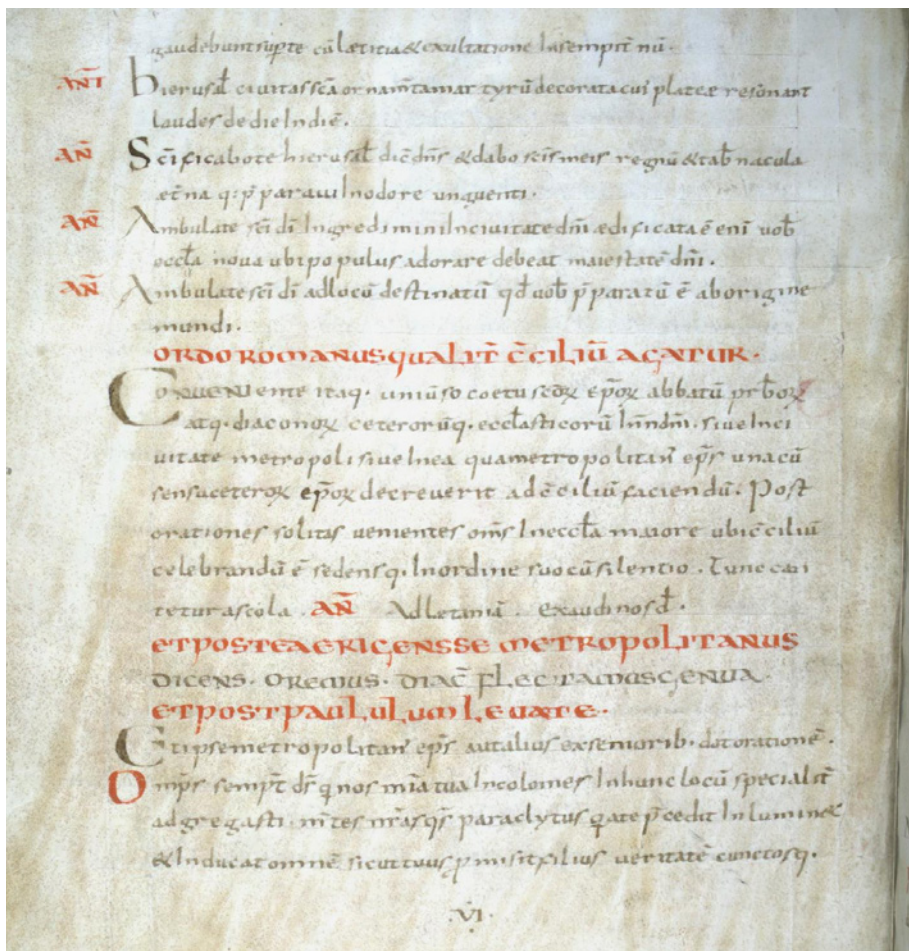 gaudebunt sup te cū lætitia & exultatione In sempit̄ nū ·
AN̄T Hierusał ciuitas sc̄a ornam̄ta martyrū decorata cui plateæ resonant
laudes de die In diē ·
AN̄ Sc̄ificabo te hierusał dic̄ dn̄s & dabo sc̄is meis regnū & tab̄nacula
æt̄na q: p̄paraui In odore unguenti ·
AN̄ Ambulate sc̄i dī Ingredimini In ciuitate dn̄i ædificata ē enī uob̄
eccła noua ubi populus adorare debeat maiestatē dn̄i ·
AN̄ Ambulate sc̄i dī ad locū destinatū qd̄ uob̄ p̄paratū ē ab origine
mundi ·
ORDO ROMANUS QUALIT̄ C̄CILIŪ AGATUR ·
CONUENIente itaq· uniuso coetu sc̄oꝝ ep̄oꝝ abbatū pr̄boꝝ
atq· diaconoꝝ ceterorūq· eccłasticorū In n̄ dn̄i · siue In ci
uitate metropoli siue In ea qua metropolitan̄ ep̄s una cū
sensu ceteroꝝ ep̄oꝝ decreuerit ad c̄ciliū faciendū · Post
orationes solitas uenientes om̄s In eccła maiore ubi c̄ciliū
celebrandū ē sedensq· In ordine suo cū silentio · Tunc can
tetur a scola · AN̄ Ad Letaniā · Exaudi nos d̄ ·
ET POSTEA ERIGENS SE METROPOLITANUS
DICENS · OREMUS · DIAC̄ FLECTAMUS GENUA ·
ET POST PAULULUM LEUATE ·
Et ipse metropolitan̄ ep̄s aut alius ex seniorib· det orationē ·
Omp̄s sempit̄ ds̄ q nos mīa tua Incolomes In hunc locū specialit̄
adgregasti · m̄tes nr̄as qs̄ paraclytus q a te p̄cedit Inlumin&
& Inducat omnē sicut tuus ꝓmisit filius ueritatē cunctosq·
·VI·